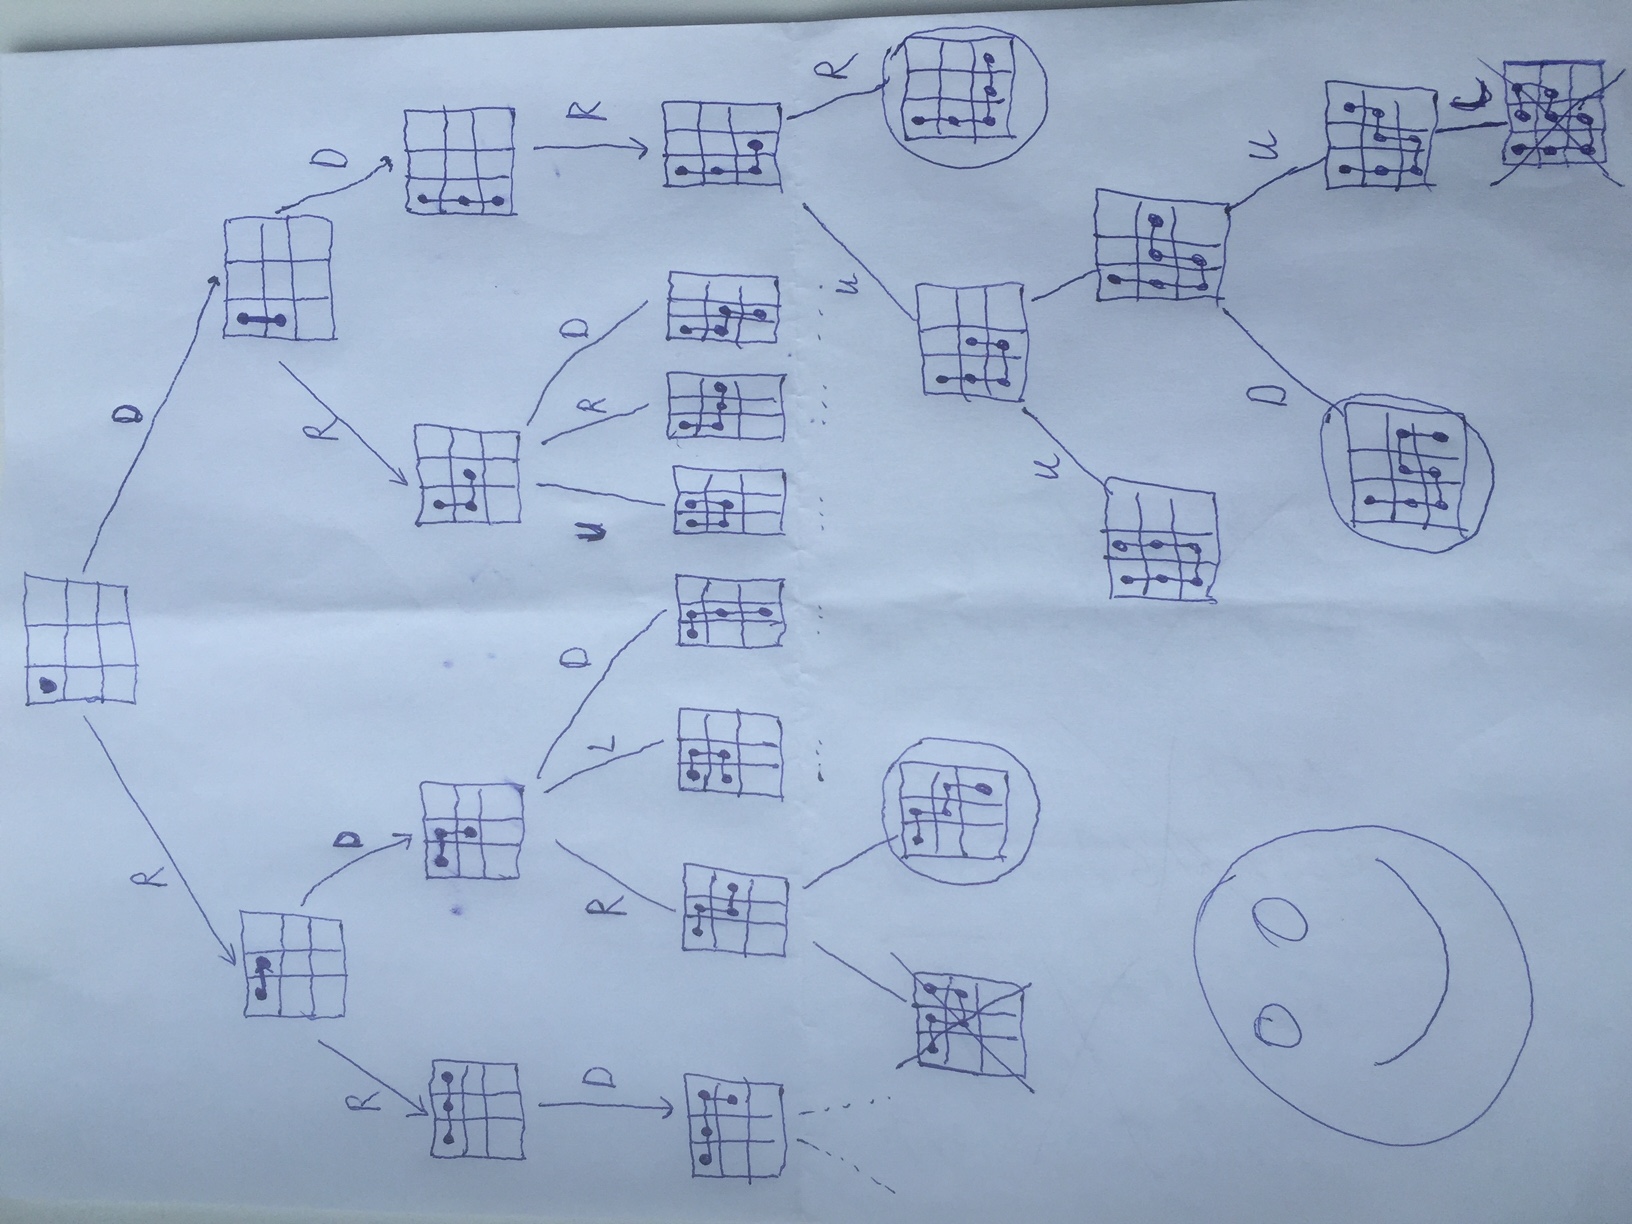 R D
R D R D
D R L D U R D R
U R
U
D U
L